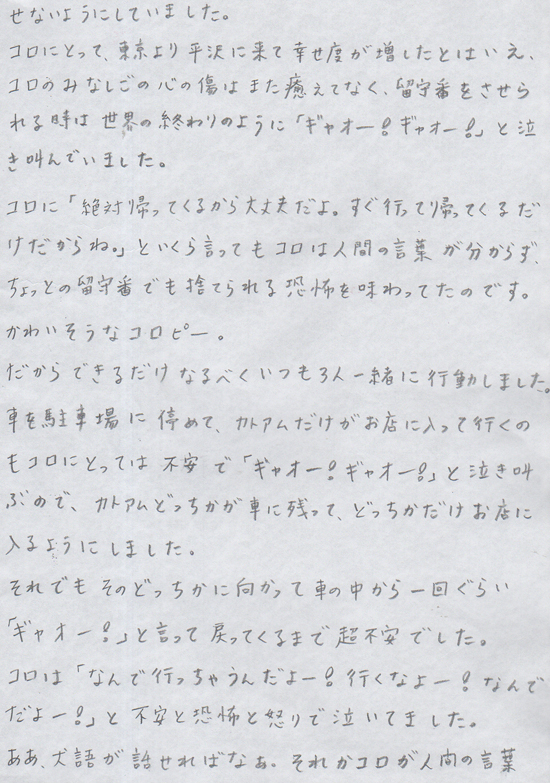 せないようにしていました。
コロにとって、東京より平沢に来て幸せ度が増したとはいえ、
コロのみなしごの心の傷はまだ癒えてなく、留守番をさせら
れる時は世界の終わりのように「ギャオー!ギャオー!」と泣
き叫んでいました。
コロに「絶対帰ってくるから大丈夫だよ。すぐ行って帰ってくるだ
けだからね。」といくら言ってもコロは人間の言葉が分からず、
ちょっとの留守番でも捨てられる恐怖を味わってたのです。
かわいそうなコロピー。
だからできるだけなるべくいつも3人一緒に行動しました。
車を駐車場に停めて、カトアムだけがお店に入って行くの
もコロにとっては不安で「ギャオー!ギャオー!」と泣き叫
ぶので、カトアムどっちかが車に残って、どっちかだけお店に
入るようにしました。
それでもそのどっちかに向かって車の中から一回ぐらい
「ギャオー!」と言って戻ってくるまで超不安でした。
コロは「なんで行っちゃうんだよー!行くなよー!なんで
だよー!」と不安と恐怖と怒りで泣いてました。
ああ、犬語が話せればなぁ。それかコロが人間の言葉